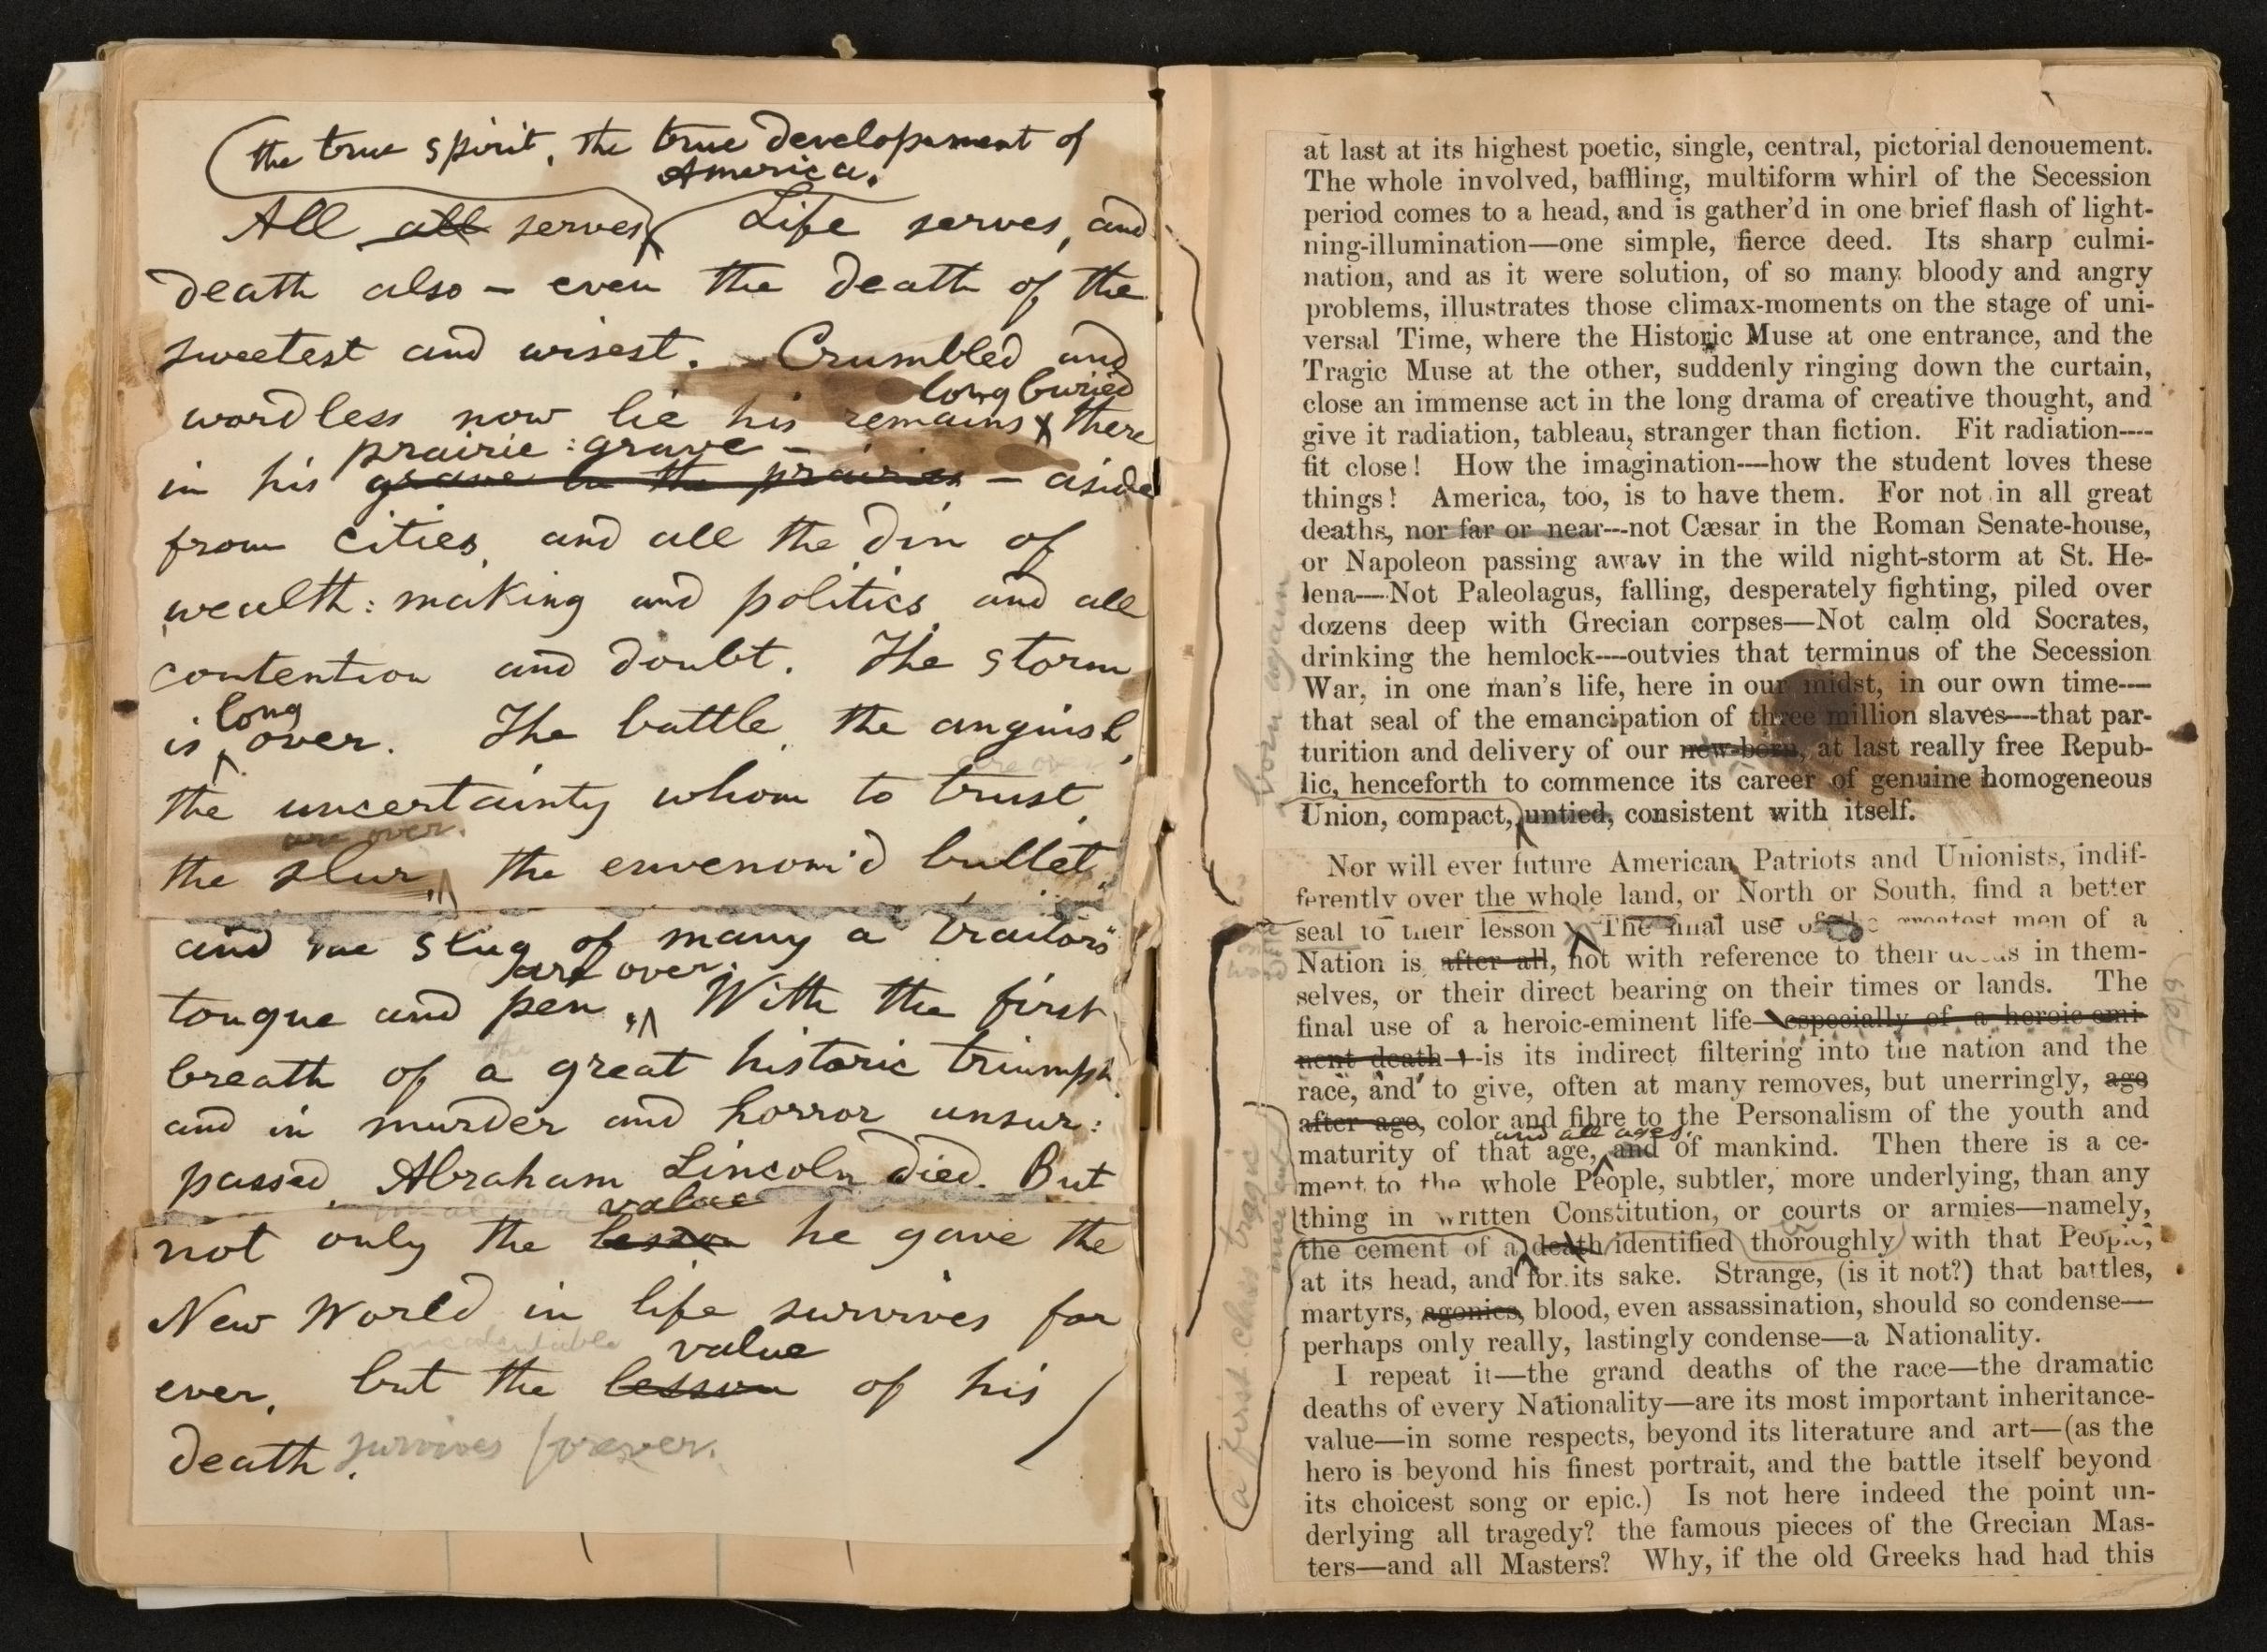 the true spirit, the true developement of
America.
All all serves Life serves, and
death also — even the death of the
sweetest and wisest. Crumbled and
long buried
wordless now lie his remains there
prairie : grave —
in his grave in the prairies — aside
from cities, and all the din of
wealth : making and politics and all
contention and doubt. The storm
long
is over. The battle, the anguish,
the uncertainty whom to trust,
are over.
the slur, the envenom'd bullet,
and the slug of many a traitor's
are over.
tongue and pen, With the first
breath of a great historic triumph
and in murder and horror unsur:
passed, Abraham Lincoln died. But
value
not only the lesson he gave the
New World in life survives for
value
ever, but the lesson of his
death. survives forever.
at last at its highest poetic, single, central, pictorial denouement.
The whole involved, baffling, multiform whirl of the Secession
period comes to a head, and is gather'd in one brief flash of light-
ning-illumination—one simple, fierce deed. Its sharp culmi-
nation, and as it were solution, of so many bloody and angry
problems, illustrates those climax-moments on the stage of uni-
versal Time, where the Historic Muse at one entrance, and the
Tragic Muse at the other, suddenly ringing down the curtain,
close an immense act in the long drama of creative thought, and
give it radiation, tableau, stranger than fiction. Fit radiation—
fit close! How the imagination—how the student loves these
things! America, too, is to have them. For not in all great
deaths, nor far or near—not Cæsar in the Roman Senate-house,
or Napoleon passing away in the wild night-storm at St. He-
lena—Not Paleolagus, falling, desperately fighting, piled over
dozens deep with Grecian corpses—Not calm old Socrates,
drinking the hemlock—outvies that terminus of the Secession
War, in one man's life, here in our midst, in our own time—
that seal of the emancipation of three million slaves—that par-
turition and delivery of our new-born, at last really free Repub-
born again
lic, henceforth to commence its career of genuine homogeneous
Union, compact, untied, consistent with itself.
Nor will ever future American Patriots and Unionists, indif-
ferently over the whole land, or North or South, find a better
seal to their lesson The final use of the greatest men of a
Nation is after all, not with reference to their deeds in them-
selves, or their direct bearing on their times or lands. The
final use of a heroic-eminent life—especially of a heroic-emi-
(stet)
nent death—is its indirect filtering into the nation and the
race, and to give, often at many removes, but unerringly, age
after age, color and fibre to the Personalism of the youth and
and all ages,
maturity of that age, and of mankind. Then there is a ce-
ment to the whole People, subtler, more underlying, than any
thing in written Constitution, or courts or armies—namely,
the cement of a death identified thoroughly with that People,
a first-class tragic
at its head, and for its sake. Strange, (is it not?) that battles,
martyrs, agonies, blood, even assassination, should so condense—
perhaps only really, lastingly condense—a Nationality.
I repeat it—the grand deaths of the race—the dramatic
deaths of every Nationality—are its most important inheritance-
value—in some respects, beyond its literature and art—(as the
hero is beyond his finest portrait, and the battle itself beyond
its choicest song or epic.) Is not here indeed the point un-
derlying all tragedy? the famous pieces of the Grecian Mas-
ters—and all Masters? Why, if the old Greeks had had this